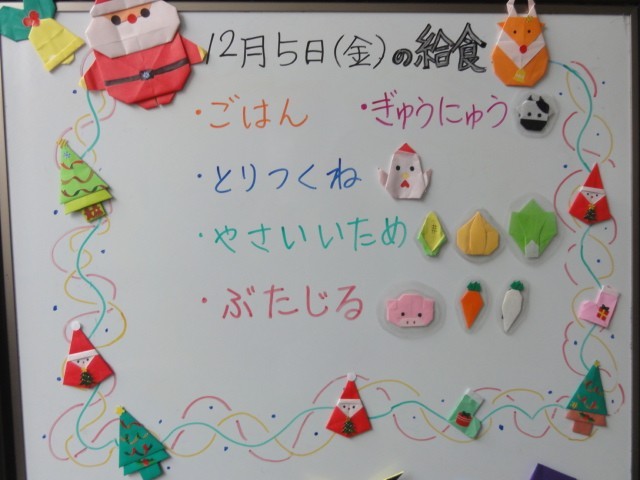 12月5日(金)の給食
・ごはん ・ぎゅうにゅう
・とりつくね
・やさいいため
・ぶたじる